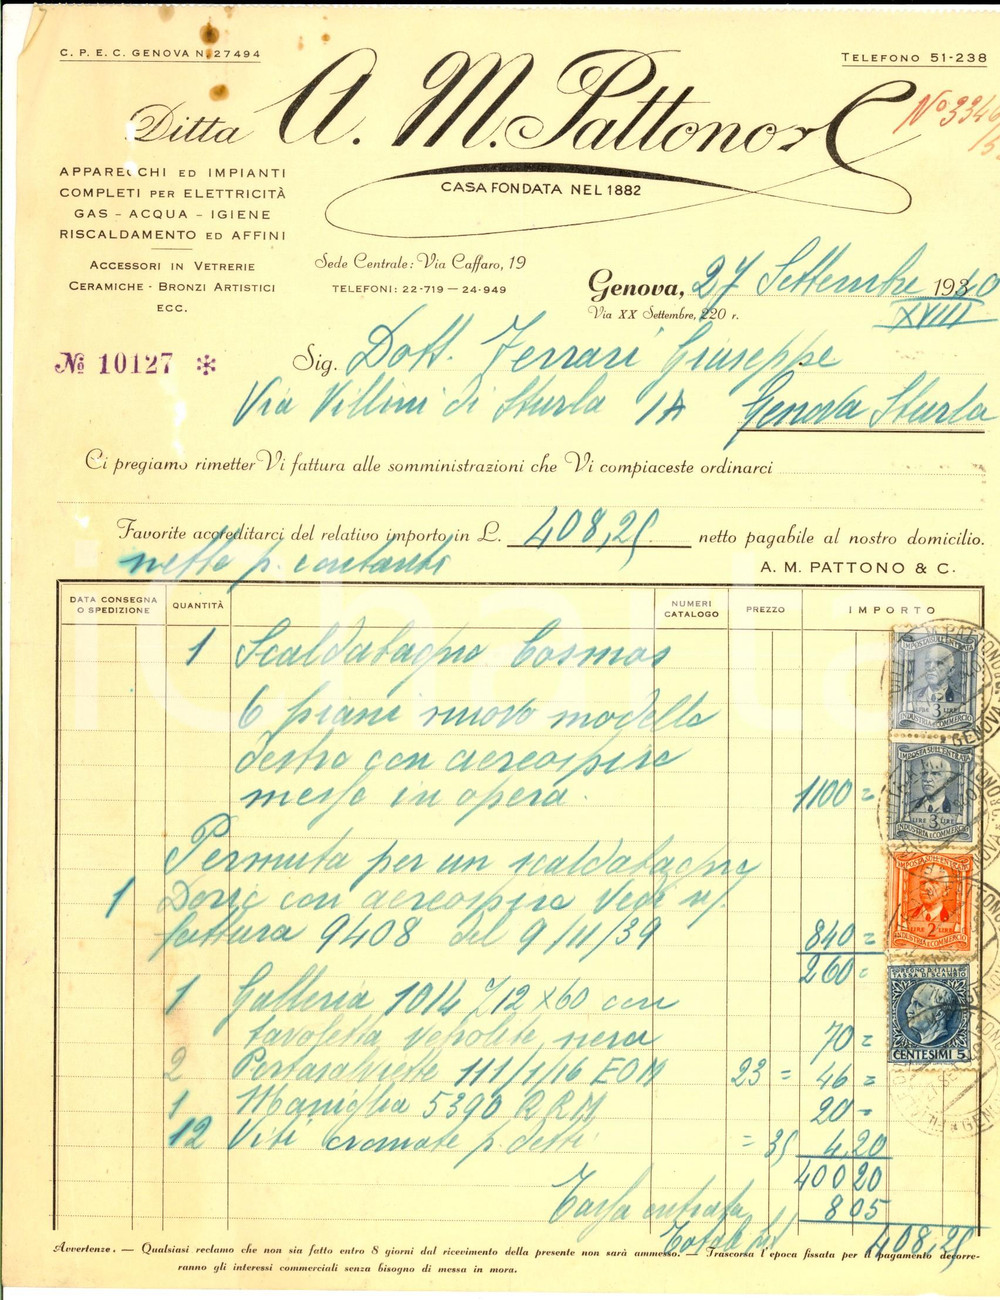 C. P. E. C. GENOVA N. 27494
TELEFONO 51-238
Ditta A. M. Pattono & C
CASA FONDATA NEL 1882
No 3346
APPARECCHI ED IMPIANTI
COMPLETI PER ELETTRICITÀ
GAS - ACQUA - IGIENE
RISCALDAMENTO ED AFFINI
ACCESSORI IN VETRERIE
CERAMICHE - BRONZI ARTISTICI
ECC.
Sede Centrale: Via Caffaro, 19
TELEFONI: 22-719 — 24-949
Genova, 27 Settembre 1940
XVIII
Via XX Settembre, 220 r.
№ 10127 *
Sig. Dott. Ferrari Giuseppe
Via Villini di Sturla 1A Genova Sturla
Ci pregiamo rimetterVi fattura alle somministrazioni che Vi compiaceste ordinarci
Favorite accreditarci del relativo importo in L. 408,25 netto pagabile al nostro domicilio.
netto p. contanti
A. M. PATTONO & C.
DATA CONSEGNA O SPEDIZIONE QUANTITÀ NUMERI CATALOGO PREZZO IMPORTO
1 Scaldabagno Cosmos
6 piani nuovo modello
destro con aereospira
messo in opera. 1100 =
Permuta per un scaldabagno
1 Doric con aereospira Vedi n/.
fattura 9408 del 9/11/39 840 =
260 =
1 Galleria 1014 712 x 60 con
tavoletta nera 70 =
2 Portasalviette 111/1/16 EOM 23 = 46 =
1 Maniglia 5390 RRM 20 =
12 Viti cromate p. detti = 35 4,20
400 20
Tassa entrata 8 05
Totale 408,25
IMPOSTA SULL'ENTRATA
LIRE 3 LIRE
INDUSTRIA E COMMERCIO
IMPOSTA SULL'ENTRATA
LIRE 3 LIRE
INDUSTRIA E COMMERCIO
IMPOSTA SULL'ENTRATA
LIRE 2 LIRE
INDUSTRIA E COMMERCIO
REGNO D'ITALIA
TASSA DI SCAMBIO
CENTESIMI 5
Avvertenze. — Qualsiasi reclamo che non sia fatto entro 8 giorni dal ricevimento della presente non sarà ammesso. — Trascorsa l'epoca fissata per il pagamento decorre-
ranno gli interessi commerciali senza bisogno di messa in mora.